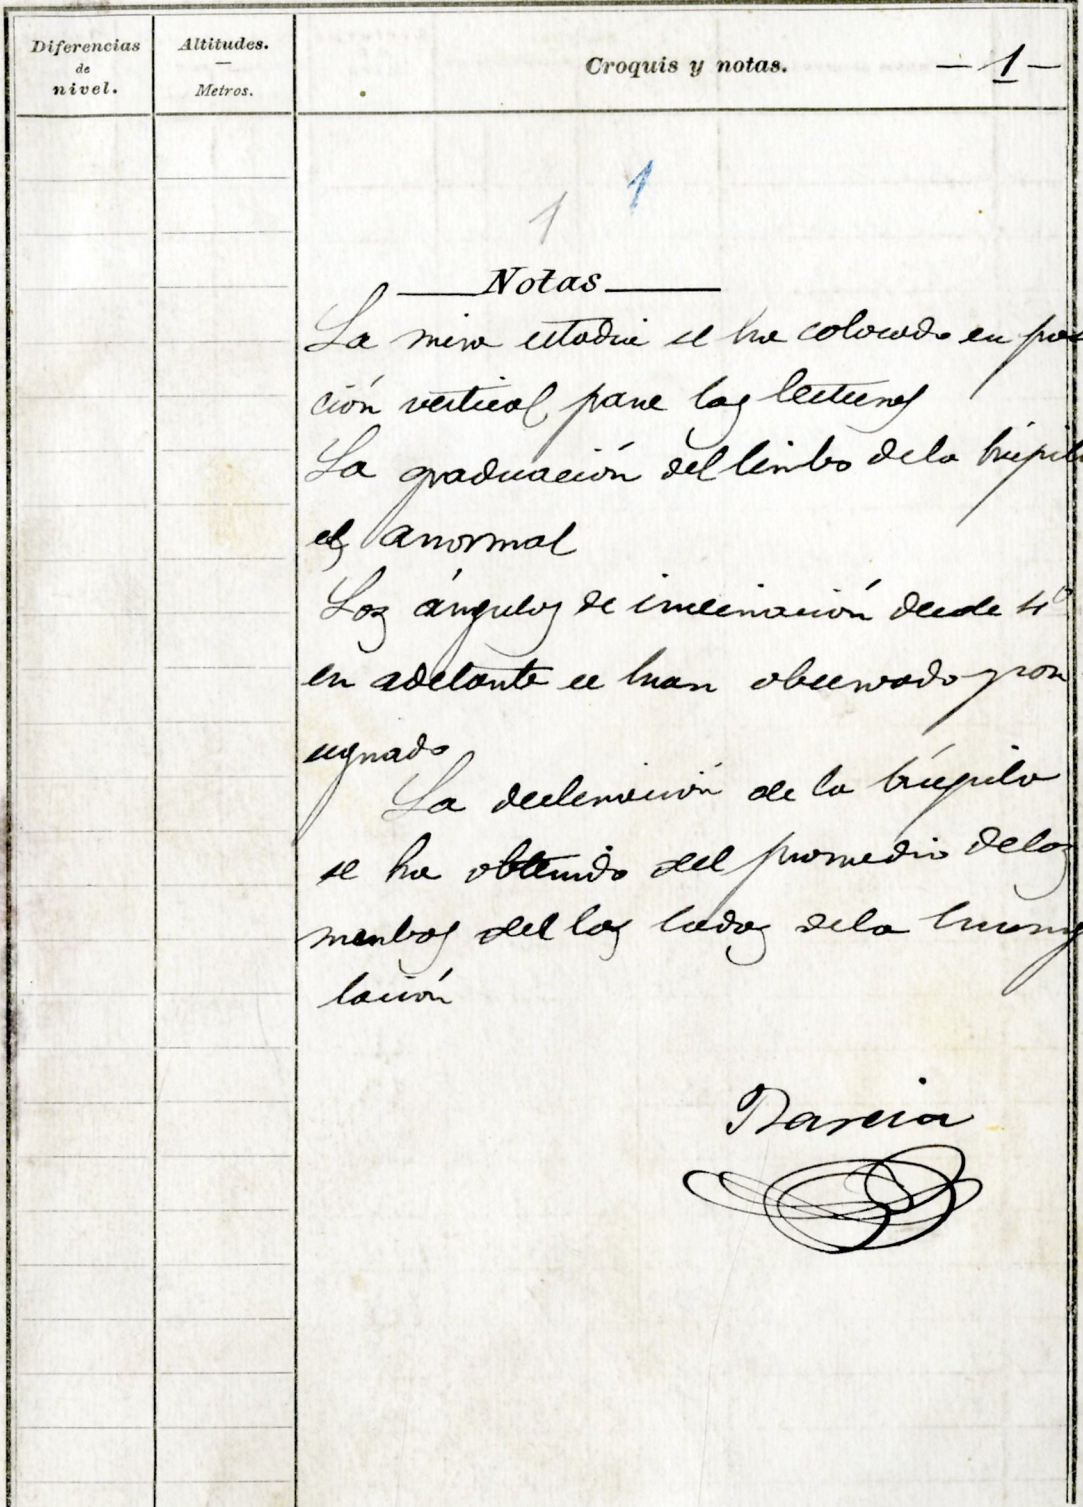 Diferencias
de
nivel.
Altitudes.
Metros.
Croquis y notas.
- 1 -
1
1
Notas
La mira estadia se ha colocado en posi
ción vertical para las lecturas
La graduación del limbo de la brújula
es anormal
Los ángulos de inclinación desde 4º
en adelante se han observado y con
signado
La declinación de la brújula
se ha obtenido del promedio de los
rumbos del los lados de la triang
lación